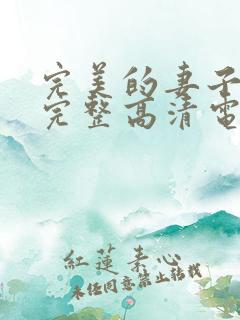 完美的妻子
完整高清电
红莲素心
未经同意禁止转载